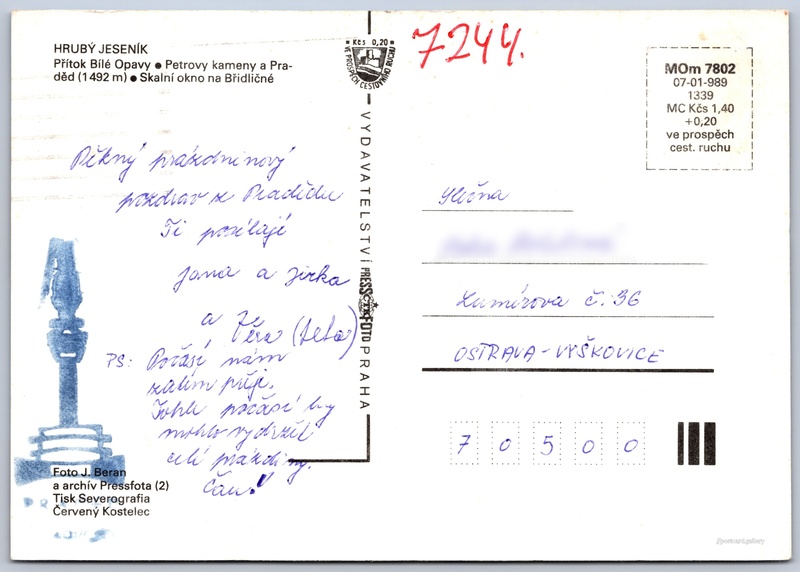 HRUBÝ JESENÍK
Přítok Bílé Opavy ● Petrovy kameny a Pra-
děd (1 492 m) ● Skalní okno na Břidličné
Kčs 0,20
VE PROSPĚCH CESTOVNÍHO RUCHU
7244.
MOm 7802
07-01-989
1339
MC Kčs 1,40
+0,20
ve prospěch
cest. ruchu
Pěkný prázdninový
pozdrav z Pradědu
Ti posílají
Jana a Jirka
a
Věra (teta)
PS: Počasí nám
zatím přeje.
Tohle počasí by
mohlo vydržet
celé prázdniny.
Čau!
VYDAVATELSTVÍ PRESSFOTO PRAHA
Slečna
Lumírova č. 36
OSTRAVA - VÝŠKOVICE
7 0 5 0 0
Foto J. Beran
a archív Pressfota (2)
Tisk Severografia
Červený Kostelec